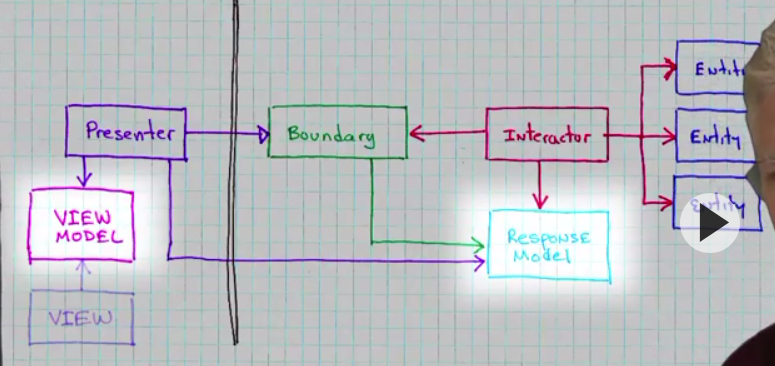 Entiti
Presenter
Boundary
Interactor
Entity
Entity
VIEW
MODEL
RESPONSE
Model
VIEW